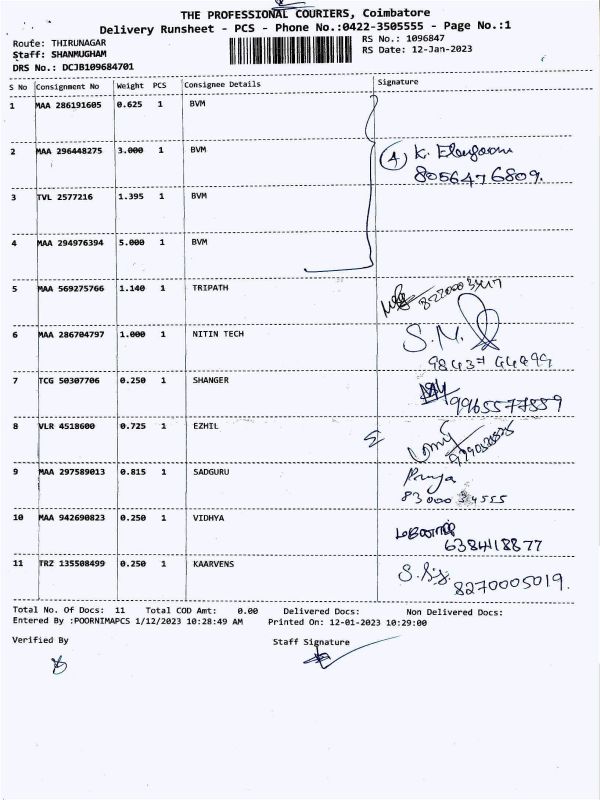 THE PROFESSIONAL COURIERS, Coimbatore
Delivery Runsheet - PCS - Phone No.:0422-3505555 - Page No.:1
Route: THIRUNAGAR
RS No.: 1096847
Staff: SHANMUGHAM
RS Date: 12-Jan-2023
DRS No.: DCJB109684701
S No Consignment No Weight PCS Consignee Details Signature
1 MAA 286191605 0.625 1 BVM
2 MAA 296448275 3.000 1 BVM
4 K.
8056476809.
3 TVL 2577216 1.395 1 BVM
4 MAA 294976394 5.000 1 BVM
5 MAA 569275766 1.140 1 TRIPATH
6 MAA 286704797 1.000 1 NITIN TECH
S.M.
98437 44499
7 TCG 50307706 0.250 1 SHANGER
9965577559
8 VLR 4518600 0.725 1 EZHIL
9 MAA 297589013 0.815 1 SADGURU
Priya
10 MAA 942690823 0.250 1 VIDHYA
6384118877
11 TRZ 135508499 0.250 1 KAARVENS
8270005019.
Total No. Of Docs: 11 Total COD Amt: 0.00 Delivered Docs: Non Delivered Docs:
Entered By :POORNIMAPCS 1/12/2023 10:28:49 AM Printed On: 12-01-2023 10:29:00
Verified By Staff Signature